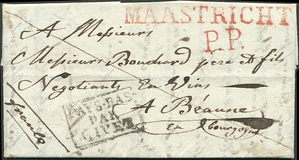 MAASTRICHT
P.P.
A Messieurs
Messieurs Bouchard pere et fils
Negotiants En Vins
A Beaune
en bourgogne
PAYS-BAS
PAR
GIVET
franco